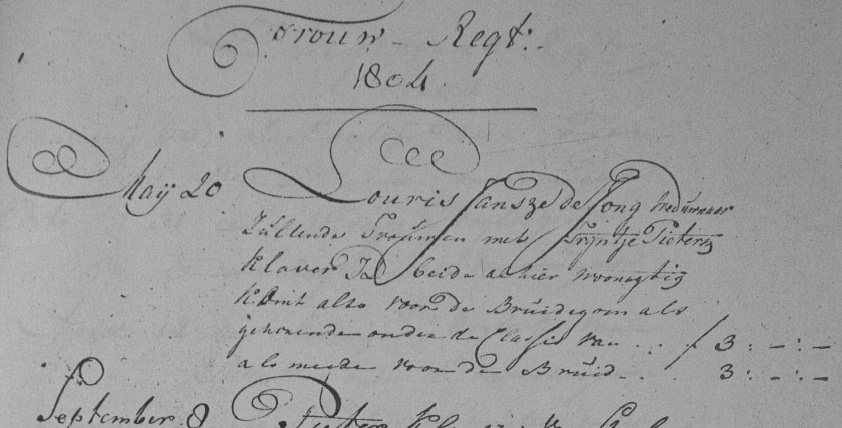 Trouw - Regt:
1804
May 20 Louris Jansze de Jong weduwnaar
Zullende Trouwen met Trijntje Pieters
Klaver J:d beide alhier woonagtig
komt also voor de Bruidegom als
gehoorende onder de Classis van . . . f 3 : - : -
als meede voor de Bruid . . . 3 : - : -
September 8 Pieter